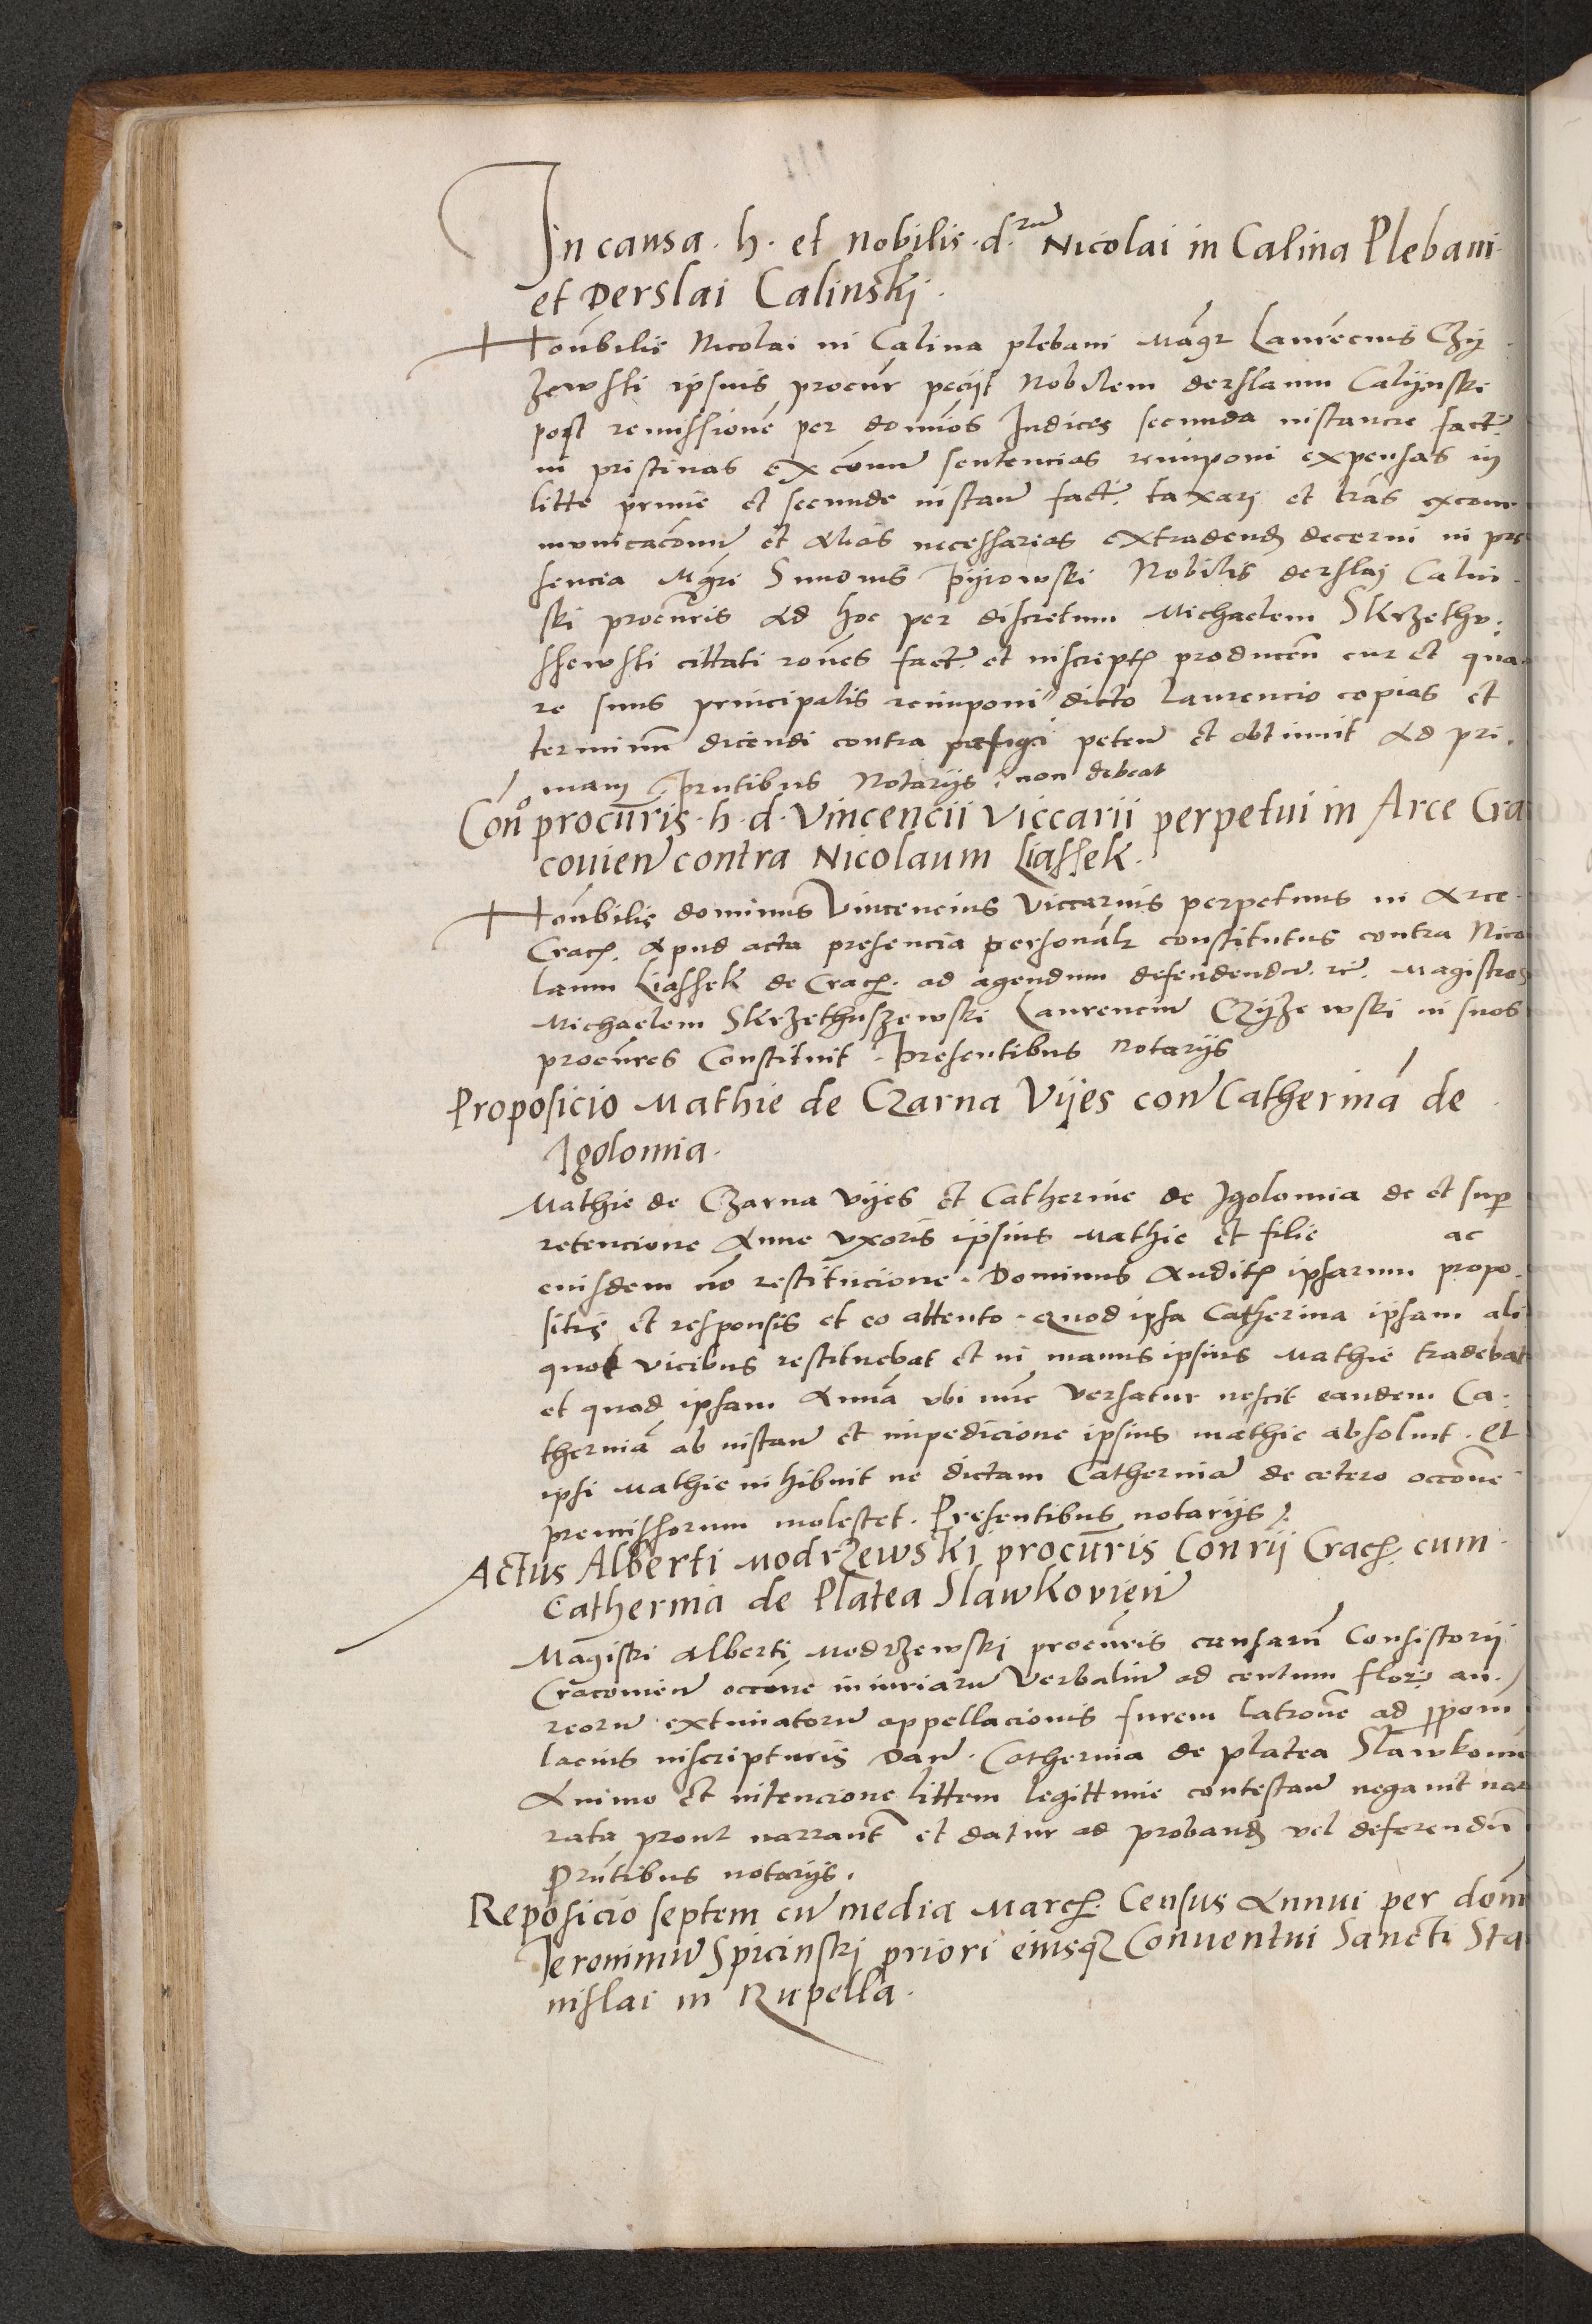 In causa . h . et nobilis . d.rum Nicolai in Calina Plebani
et Derslai Calinskj .
Honbilis Nicolai in Calina plebani Magr Laurencius Czij
zewski ipsius procur peciit Nobilem derslaum Calijnski
post remissione per dominos Judices secunda instancie fact.
in pristinas excomu sentencias reimponi expensas in
litte prime et secunde instan fact. taxarj et lras excom
municacionu et alias necessarias extradend decerni in pre
sencia Mgri Simonis Pijrowski Nobilis derslaj Calin
ski procuris ad hoc per discretum Michaelem Skrzethu
ssewski cittati rones fact. et inscript producen cur et qua
re suus principalis reimponi dicto Laurencio copias et
terminum dicendi contra prefigi peten et obtinuit ad pri.
mam Prntibus Notarijs . non debeat
Cono procuris . h . d . Vincencii Viccarii perpetui in Arce Cra
couien contra Nicolaum Liassek .
Honbilis dominus Vincencius Viccarius perpetuus in Arce
Crac. apud acta presencia personalr constitutus contra Nico
laum Liassek de Crac. ad agendum defendendu. rc. Magistros
Michaelem Skrzethuszewski Laurenciu Czijzewski in suos
procures Constituit . Presentibus Notarijs
Proposicio Mathie de Czarna Vijes con Catherina de
Igolomia .
Mathie de Czarna Vijes et Catherine de Igolomia de et super
retencione Anne vxoris ipsius Mathie et filie ac
eiusdem no restitucione . Dominus Audit ipsarum propo
sitis et responsis et eo attento . quod ipsa Catherina ipsam ali
quot vicibus restituebat et in manus ipsius Mathie tradebat
et quod ipsam Anna vbi nunc versatur nescit eandem Ca
therina ab instan et impedicione ipsius mathie absoluit . Et
ipsi Mathie inhibuit ne dictam Catherina de cetero occone
premissorum molestet . Presentibus notarijs .
Actus Alberti Modrzewskj procuris Conrij Crac. cum
Catherina de Platea Slawkouien
Magistri Alberti Modrzewskj procuris causaru Consistorij
Cracouien occone iniuriaru Verbaliu ad centum flor. au
reoru extimatoru appellacionis furem latrone ad ppom
lacius inscripturis Dan . Catherina de platea Slawkouie
Animo et intencione littem legittime contestan negauit nar
rata prout narrant et datur ad proband vel deferendu
Prntibus notarijs .
Reposicio septem cu media Marc. Census Annui per dom
Jeronimu Spicinskj priori eiusq Conuentui Sancti Sta
nislai in Rupella .